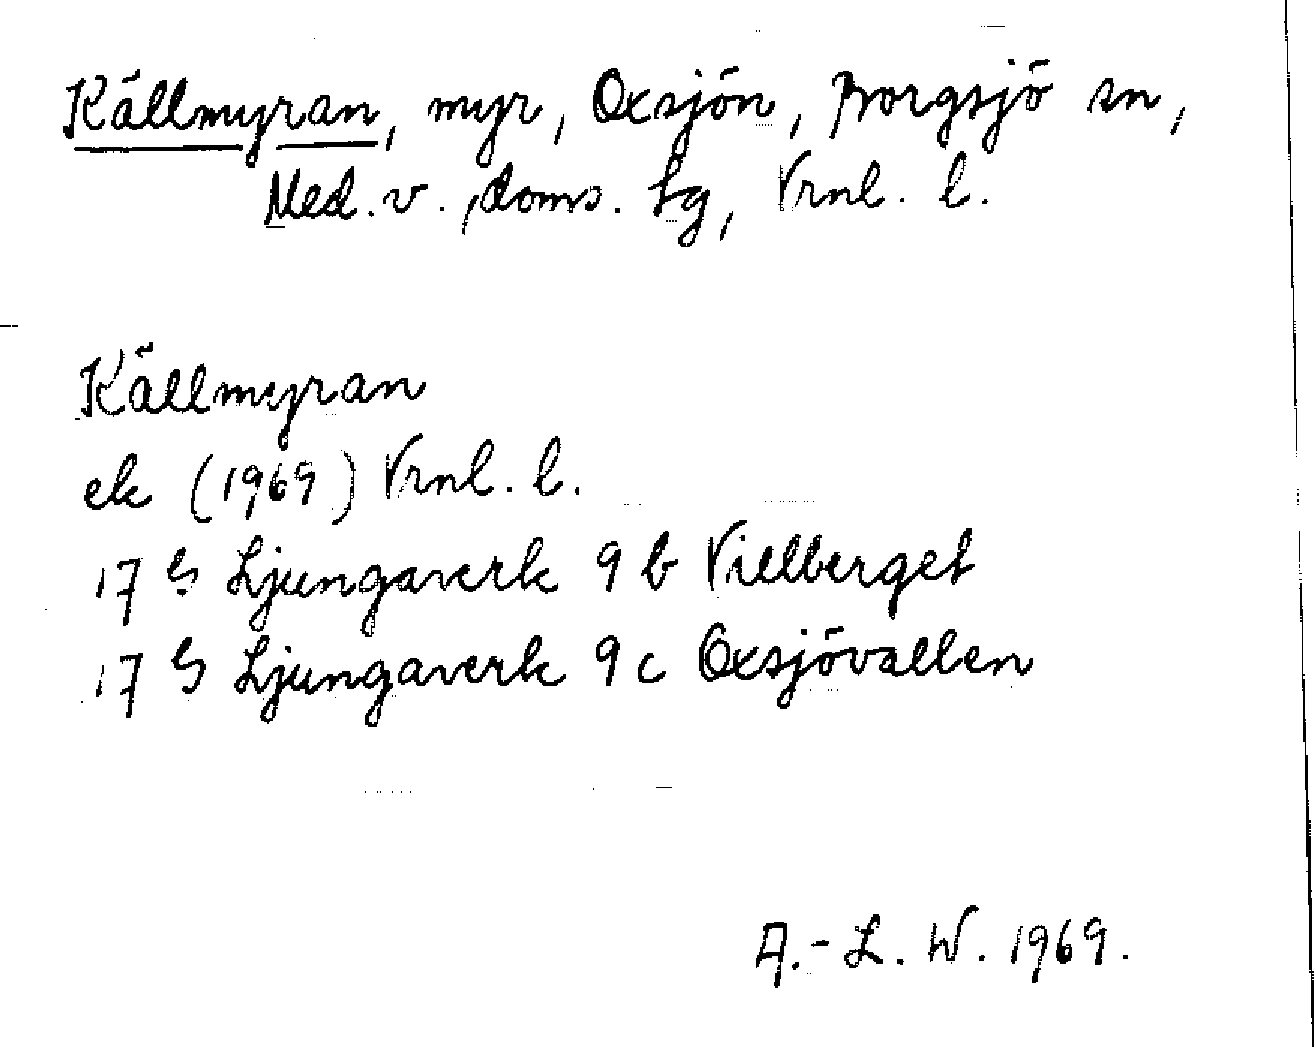 Källmyran, myr, Oxsjön, Borgsjö sn,
Med. v., doms. lg, Vrnl. l.
Källmyran
ek (1969) Vrnl. l.
17 G Ljungaverk 9 b Villberget
17 G Ljungaverk 9 c Oxsjövallen
A.-L. W. 1969.